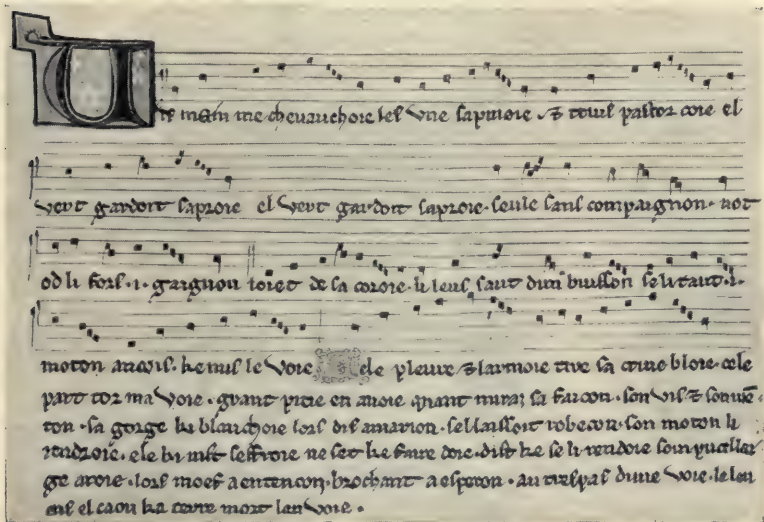 Ui main me chevauchoie les une sapinoie . ⁊ truis pastor coie el
vert gardoit sa proie el vert gardoit sa proie . seule sans compaignon . not
od li fors . i . gaignon ioiet de sa coroie . li leus saut dun buisson se li taut . i .
moton ancois . ke nus le voie ele pleure ⁊ larmoie tire sa crine bloie . cele
part tor ma voie . grant pitie en avoie quant mirai sa faicon . son vis ⁊ son
ton . sa gorge ki blanchoie lors dis amarion . sel laissoit robecon . son moton li
rendroie . ele ne set ke faire doie . dist ke se li rendoie son pucellage
ge avoie . lors moef a entencon . brochant a esperon . au trespas dune voie . le leu
ke terre mort lan voie .